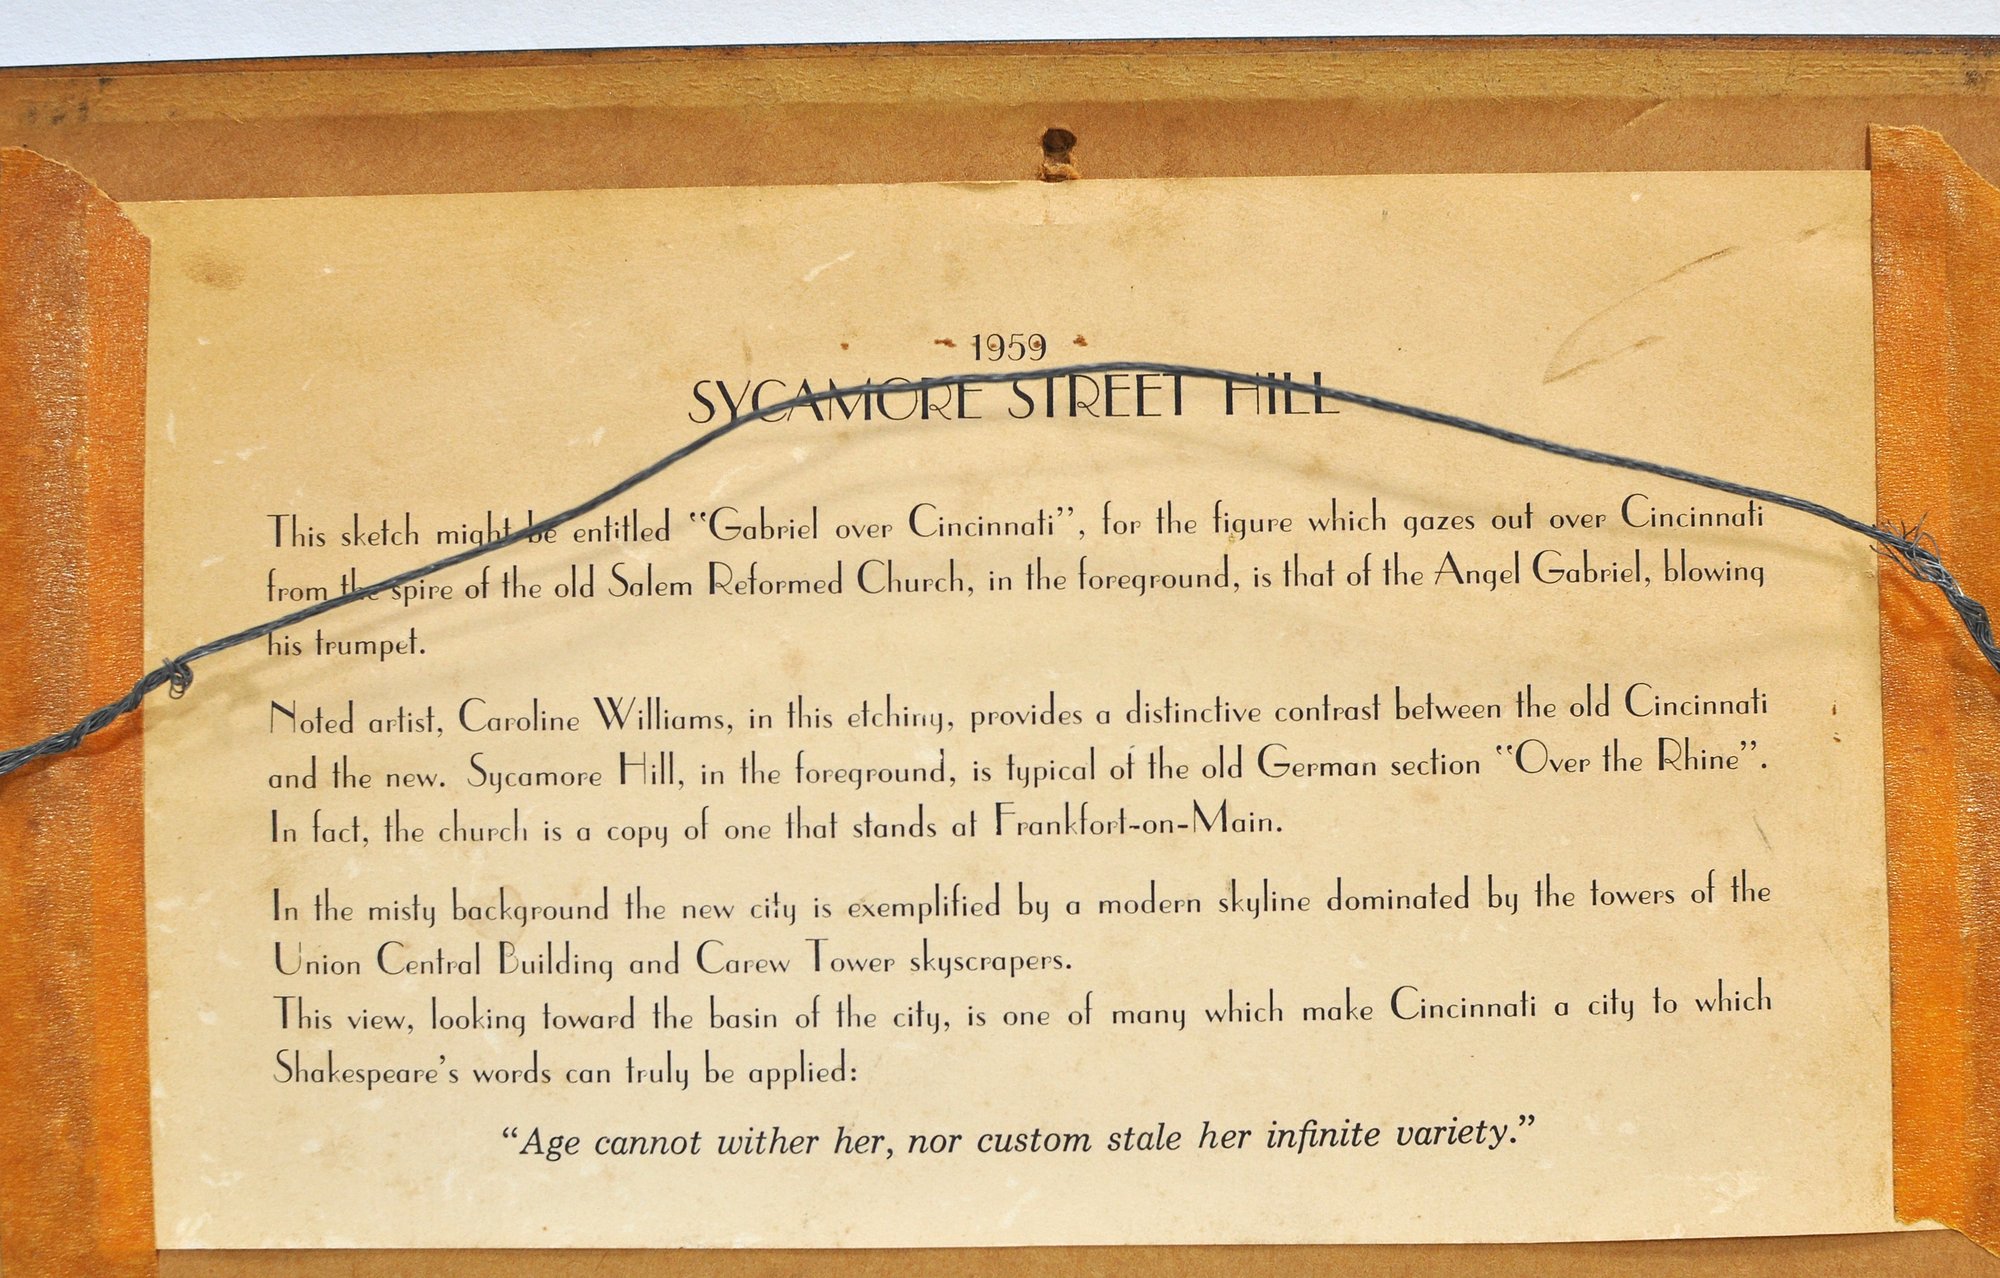 1959
SYCAMORE STREET HILL
This sketch might be entitled "Gabriel over Cincinnati", for the figure which gazes out over Cincinnati
from the spire of the old Salem Reformed Church, in the foreground, is that of the Angel Gabriel, blowing
his trumpet.
Noted artist, Caroline Williams, in this etching, provides a distinctive contrast between the old Cincinnati
and the new. Sycamore Hill, in the foreground, is typical of the old German section "Over the Rhine".
In fact, the church is a copy of one that stands at Frankfort-on-Main.
In the misty background the new city is exemplified by a modern skyline dominated by the towers of the
Union Central Building and Carew Tower skyscrapers.
This view, looking toward the basin of the city, is one of many which make Cincinnati a city to which
Shakespeare's words can truly be applied:
"Age cannot wither her, nor custom stale her infinite variety."